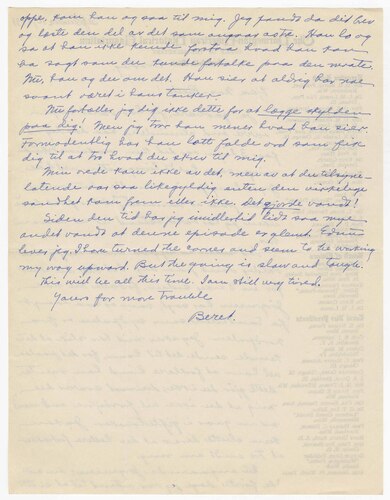 oppe, kom han og saa til mig. Jeg fandt da dit brev
og læste den del av det som angaar dette. Han lo og
sa at han ikke kunde forstaa hvad han kan
ha sagt som du kunde fortolke paa den maate.
Nu, han og du om det. Han sier at aldrig har noe
saant været i hans tanker.
Nu forteller jeg dig ikke dette for at lægge skylden
paa dig. Men jeg tror han mener hvad han sier.
Formodentlig har han latt falde ord som fik
dig til at tro hvad du skrev til mig.
Min vrede kom ikke av det, men av at du tilsyne-
latende var saa likegyldig enten den virkelige
sandhet kom frem eller ikke. Det gjorde vondt!
Siden den tid har jeg imidlertid lidt saa mye
andet vondt at denne episode er glemt.
lever jeg. I have turned the corner and seem to be working
my way upward. But the going is slow and tough.
This will be all this time. I am still very tired.
Yours for more trouble
Beret.